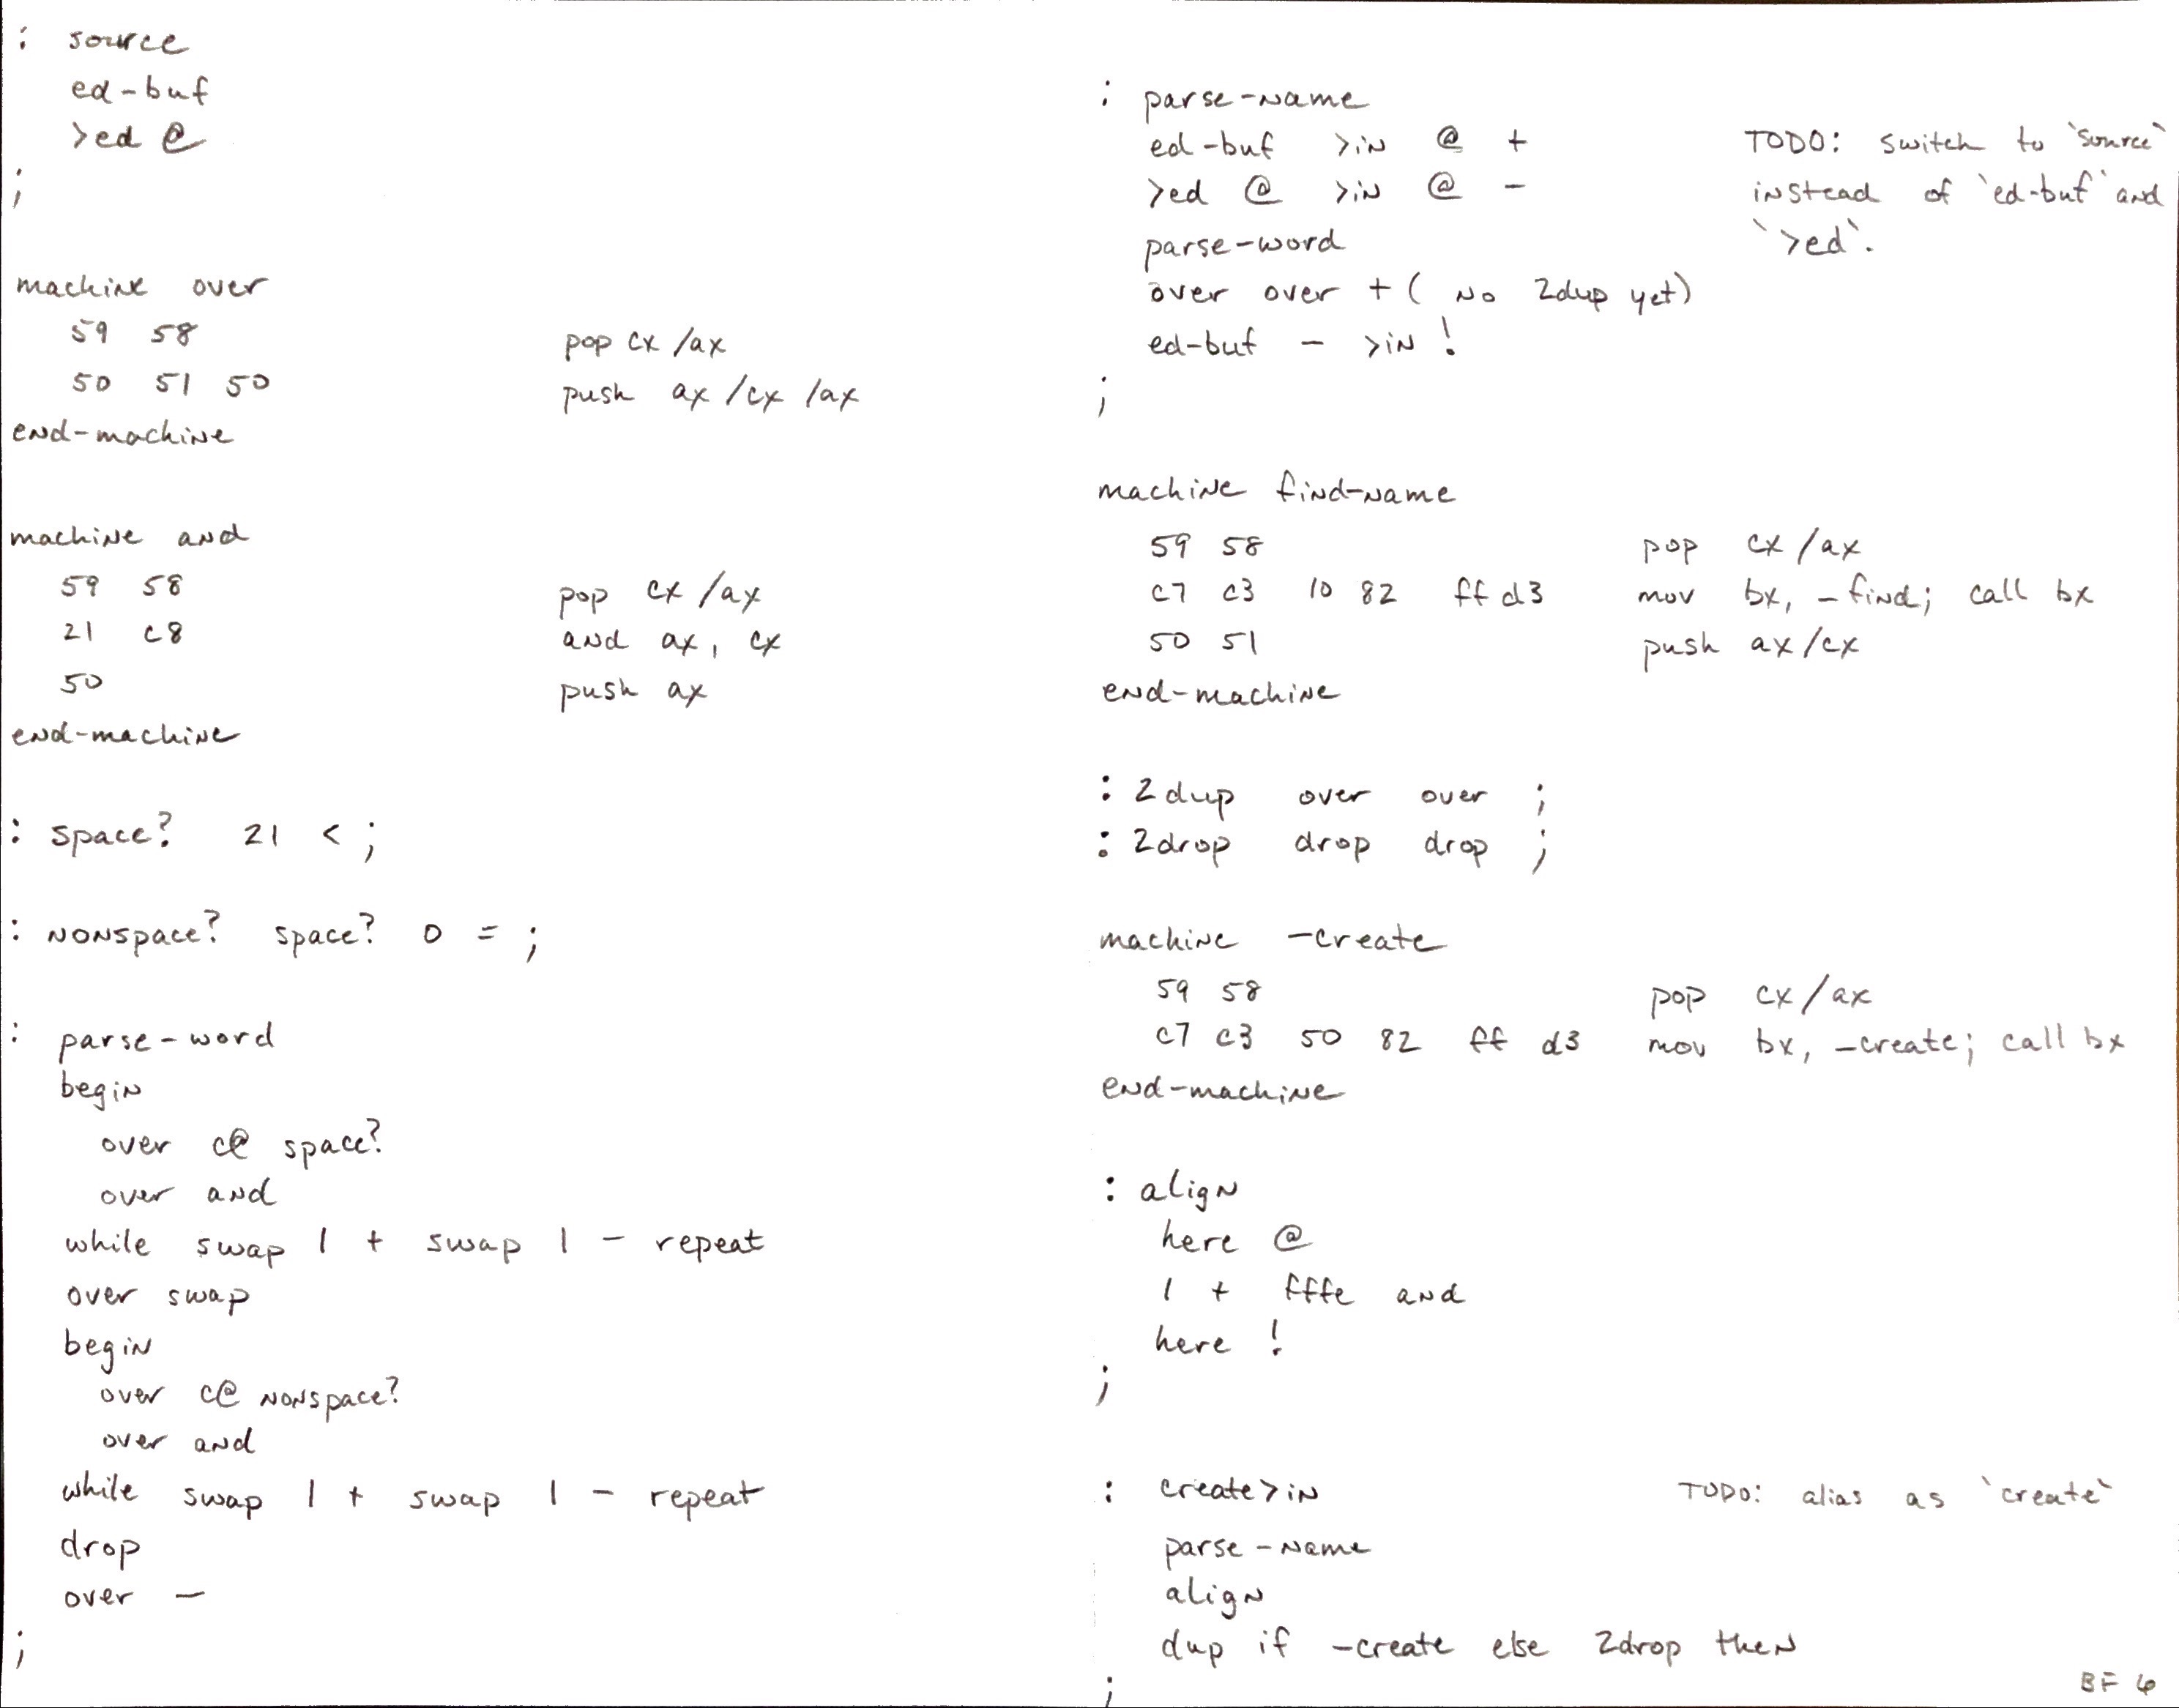 : source
ed-buf
>ed @
;
machine over
59 58 pop cx /ax
50 51 50 push ax /cx /ax
end-machine
machine and
59 58 pop cx /ax
21 c8 and ax, cx
50 push ax
end-machine
: space? 21 < ;
: nonspace? space? 0 = ;
: parse-word
begin
over c@ space?
over and
while swap 1 + swap 1 - repeat
over swap
begin
over c@ nonspace?
over and
while swap 1 + swap 1 - repeat
drop
over -
;
: parse-name
ed-buf >in @ + TODO: switch to `source`
>ed @ >in @ - instead of `ed-buf` and
parse-word `>ed`.
over over + ( no 2dup yet)
ed-buf - >in !
;
machine find-name
59 58 pop cx /ax
c7 c3 10 82 ff d3 mov bx, _find; call bx
50 51 push ax/cx
end-machine
: 2dup over over ;
: 2drop drop drop ;
machine -create
59 58 pop cx/ax
c7 c3 50 82 ff d3 mov bx, _create; call bx
end-machine
: align
here @
1 + fffe and
here !
;
: create>in TODO: alias as `create`
parse-name
align
dup if -create else 2drop then
;
BF 6